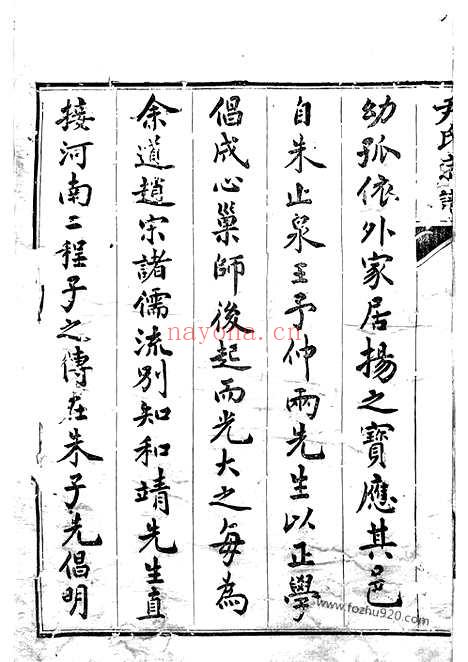 尹氏宗譜
幼孤依外家居揚之寶應其邑
自朱止泉王予仲兩先生以正學
倡成心巢師後起而光大之每為
余道趙宋諸儒流別知和靖先生直
接河南二程子之傳在朱子先倡明
nayona.cn
www.fozhu920.com